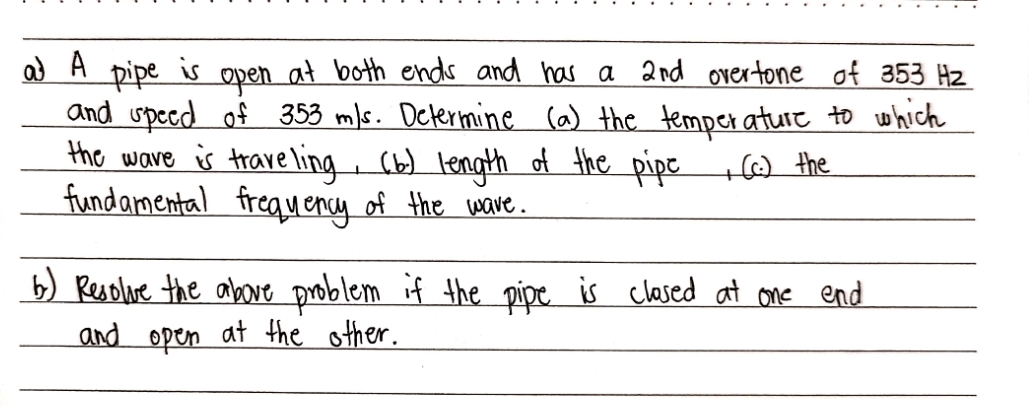 a) A pipe is open at both ends and has a 2nd overtone of 353 Hz
and speed of 353 m/s. Determine (a) the temperature to which
the wave is traveling, (b) length of the pipe , (c) the
fundamental frequency of the wave.
b) Resolve the above problem if the pipe is closed at one end
and open at the other.